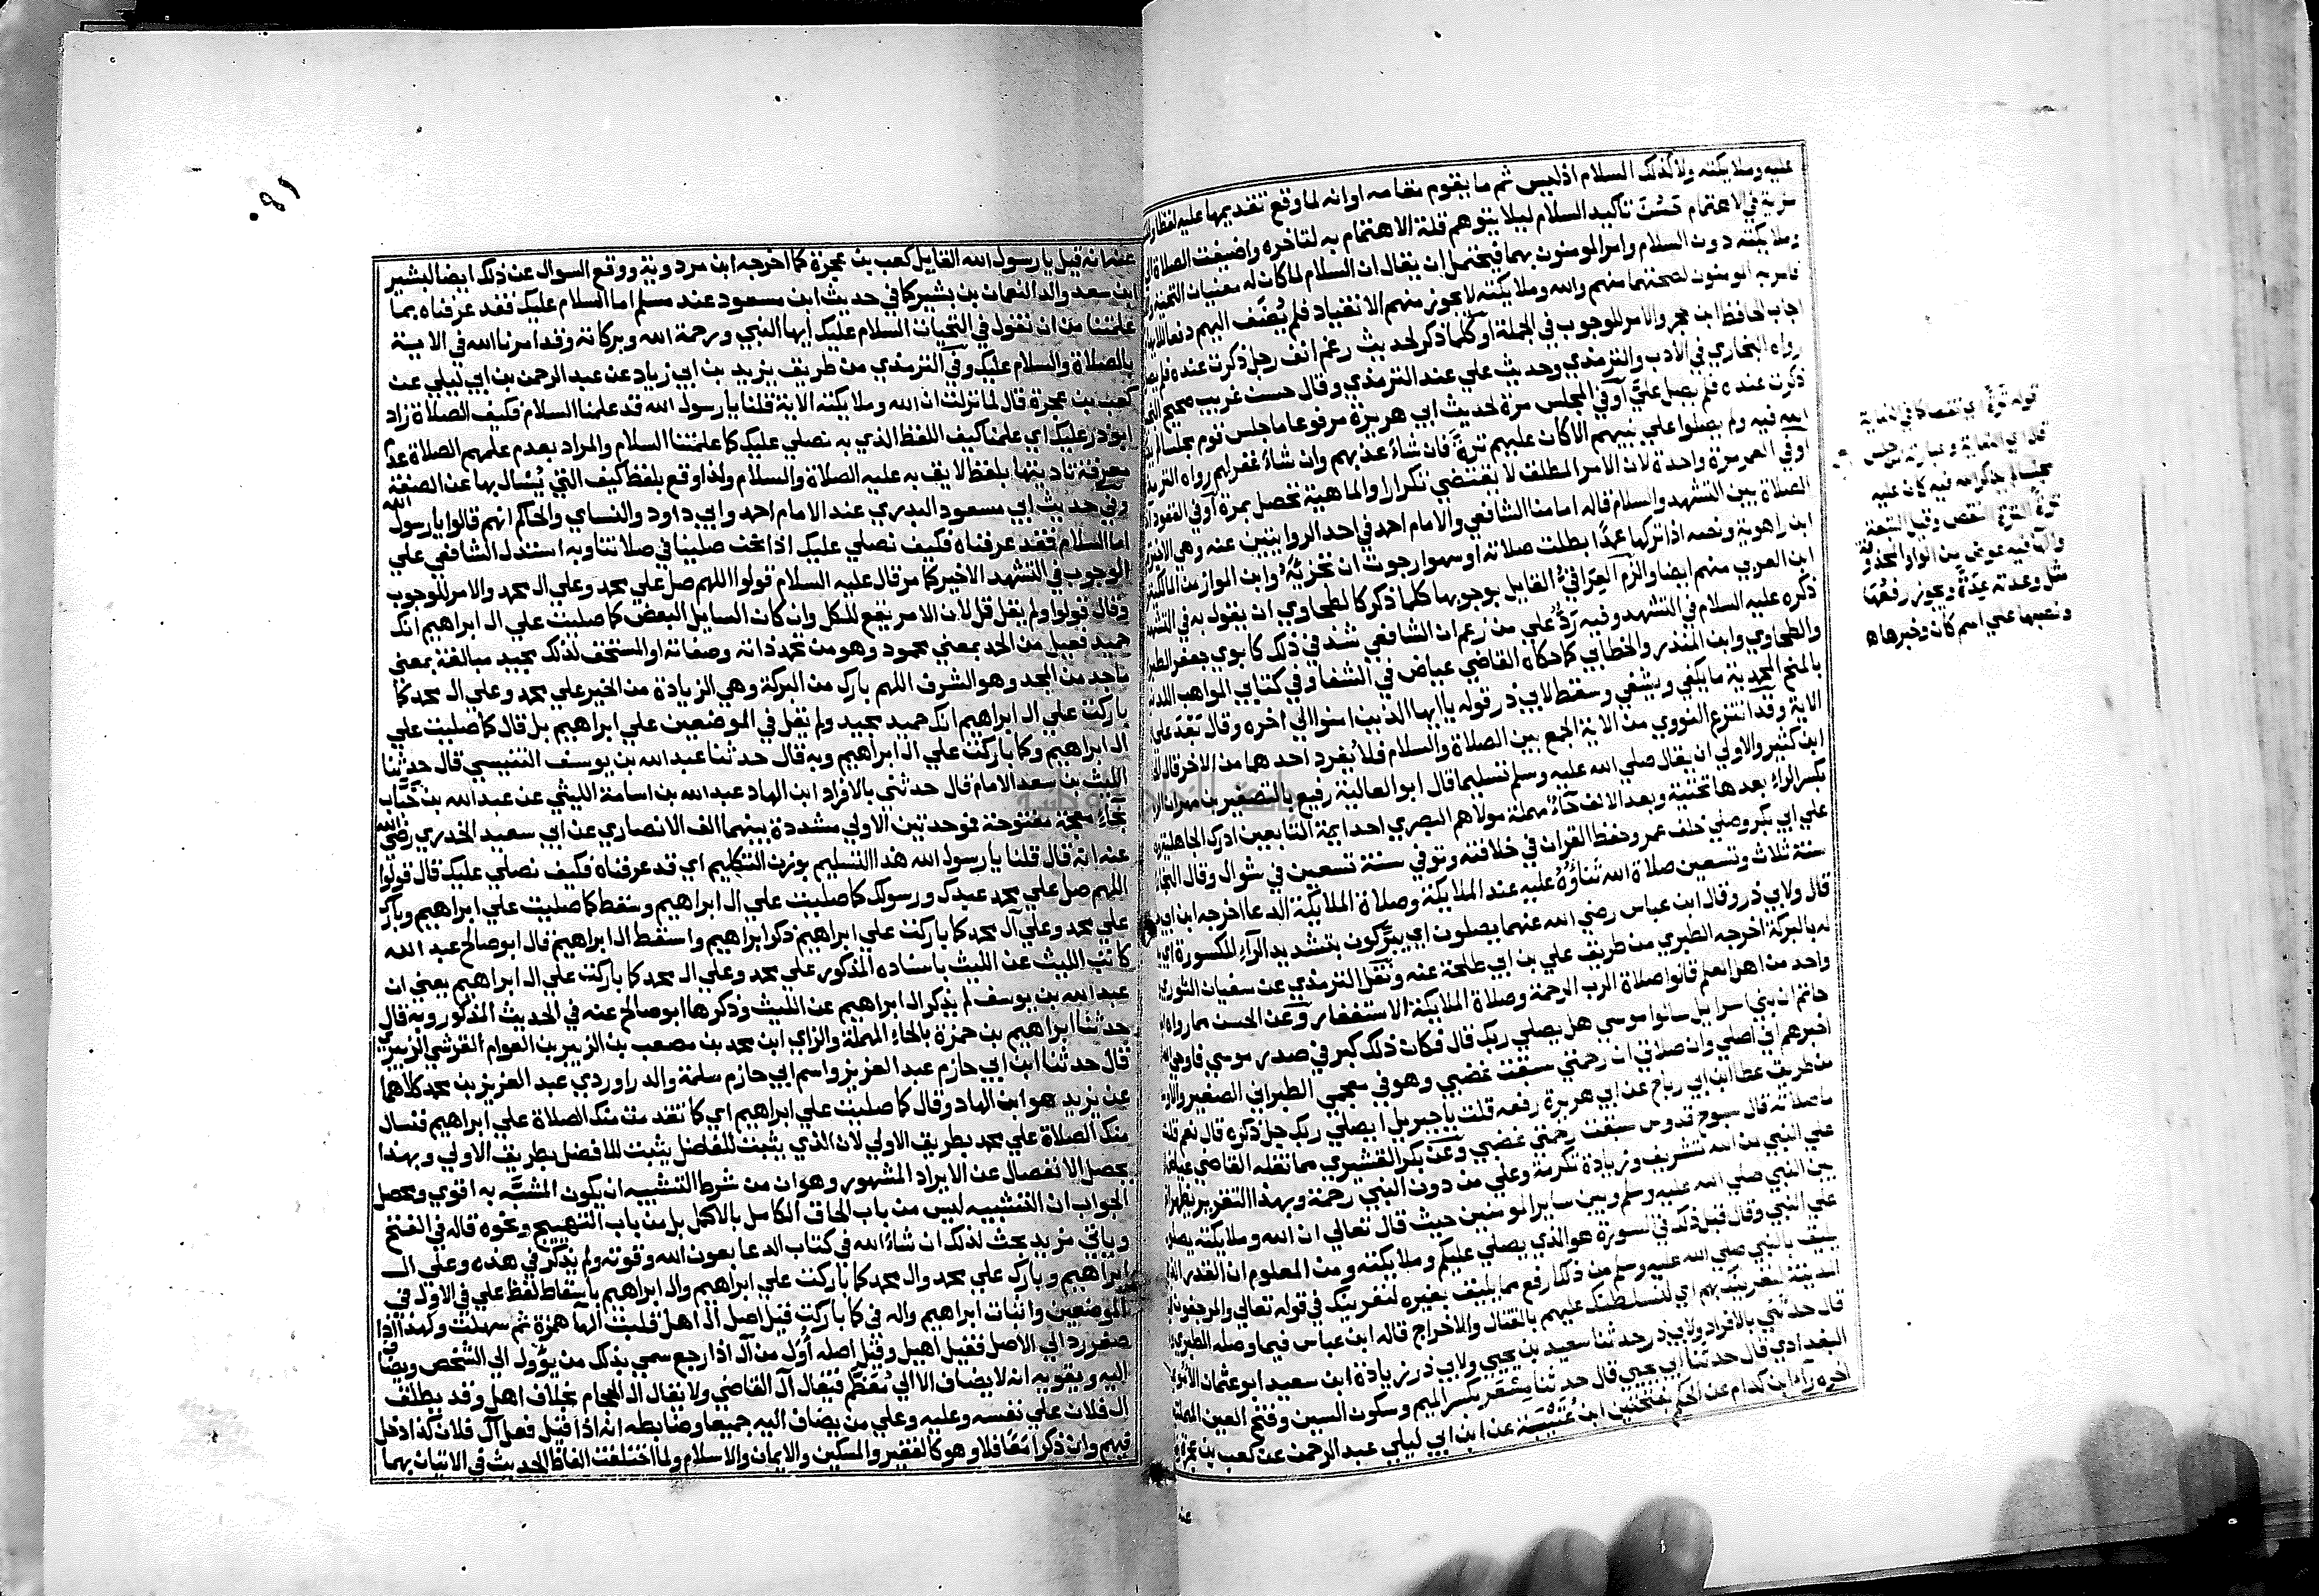 عليه وملايكته ولا كذلك السلام اذ ليس ثم ما يقوم مقامه او انه لما وقع تقديمها عليه لفظا
مزية في الاهتمام حسن تاكيد السلام ليلا يتوهم قلة الاهتمام به لتاخره واضيفت الصلاة
وملايكته دون السلام وامر المومنون بهما فيحتمل ان يقال ان السلام لما كان له معنيان التحية
فامر به المومنون لصحتهما منهم والله وملايكته لا يجوز منهم الانقياد فلم يضف اليهم دفعا
اجاب الحافظ ابن حجر والامر للوجوب في الجملة او كلما ذكر لحديث رغم انف رجل ذكرت عنده فلم
رواه البخاري في الادب والترمذي وحديث علي عند الترمذي وقال حسن غريب صحيح
ذكرت عنده فلم يصل علي او في المجلس مرة لحديث ابي هريرة مرفوعا ما جلس قوم مجلسا لم
الله فيه ولم يصلوا علي نبيهم الا كان عليهم ترة فان شاء عذبهم وان شاء غفر لهم رواه
او في العمر مرة واحدة لان الامر المطلق لا يقتضي تكرارا والماهية تحصل بمرة او في القعود
الصلاة بين التشهد والسلام قاله امامنا الشافعي والامام احمد في احد الروايتين عنه وهي
ابن راهوية ونصه اذا تركها عمدا بطلت صلاته او سهوا رجوت ان تجزيه وابن المواز من المالكية
ابن العربي منهم ايضا والزم العراقي القايل بوجوبها كلما ذكر كالطحاوي ان يقول به في
ذكره عليه السلام في التشهد وفيه رد علي من زعم ان الشافعي شذ في ذلك كابوي جعفر
والطحاوي وابن المنذر والخطابي كما حكاه القاضي عياض في الشفا وفي كتابي المواهب
بالمنح المحمدية ما يكفي ويشفي وسقط لابي ذر قوله يا ايها الذين امنوا الي اخره وقال
الاية وقد انتزع النووي من الاية الجمع بين الصلاة والسلام فلا يفرد احدهما من الاخر قال
ابن كثير والاولي ان يقال صلي الله عليه وسلم تسليما قال ابو العالية رفيع بالتصغير بن مهران
بكسر الراء بعدها تحتية وبعد الالف حاء مهملة مولاهم البصري احد ايمة التابعين ادرك الجاهلية
علي ابي بكر وصلي خلف عمر وحفظ القران في خلافته وتوفي سنة تسعين في شوال وقال
سنة ثلاث وتسعين صلاة الله ثناؤه عليه عند الملايكة وصلاة الملايكة الدعا اخرجه ابن ابي
قال ولابي ذر وقال ابن عباس رضي الله عنهما يصلون اي يبركون بتشديد الراء المكسورة اي
له بالبركة اخرجه الطبري من طريق علي بن ابي طلحة عنه ونقل الترمذي عن سفيان الثوري
واحد من اهل العلم قالوا صلاة الرب الرحمة وصلاة الملايكة الاستغفار وعن الحسن مما رواه
حاتم ان بني اسرايل سالوا موسي هل يصلي ربك قال فكان ذلك كبر في صدر موسي فاوحي
اخبرهم اني اصلي وان صلاتي ان رحمتي سبقت غضبي وهو في معجمي الطبراني الصغير
من طريق عطا ابن ابي رباح عن ابي هريرة رفعه قلت يا جبريل ايصلي ربك جل ذكره قال نعم قلت
ما صلاته قال سبوح قدوس سبقت رحمتي غضبي وعن بكر القشيري مما نقله القاضي عياض
علي النبي من الله تشريف وزيادة تكرمة وعلي من دون النبي رحمة وبهذا التقرير يظهر
بين النبي صلي الله عليه وسلم وبين ساير المومنين حيث قال تعالي ان الله وملايكته يصلون
علي النبي وقال قبل ذلك في السورة هو الذي يصلي عليكم وملايكته ومن المعلوم ان القدر
يليق بالنبي صلي الله عليه وسلم من ذلك ارفع مما يليق بغيره لنغرينك في قوله تعالي والمرجفون
المدينة لنغرينك بهم اي لنسلطنك عليهم بالقتال والاخراج قاله ابن عباس فيما وصله الطبري
قال حدثني بالافراد ولابي ذر حدثنا سعيد بن يحيي ولابي ذر زيادة ابن سعيد ابو عثمان
البغدادي قال حدثنا ابي يحيي قال حدثنا مسعر بكسر الميم وسكون السين وفتح العين
اخره راء ابن كدام عن الحكم بفتحتين ابن عتيبة عن ابن ابي ليلي عبد الرحمن عن كعب بن عجرة
عنه
قوله ترة اي نقص كما في النهاية
قال اي النهاية وعبارته من جلس
مجلسا لم يذكر الله فيه كان عليه
ترة الترة النقص وقيل التبعة
والهاء فيه عوض من الواو المحذوفة
مثل وعدته عدة ويجوز رفعها
ونصبها علي اسم كان وخبرها ه
عنه انه قيل يا رسول الله القايل كعب بن عجرة كما اخرجه ابن مردوية ووقع السوال عن ذلك ايضا لبشير
ابن سعد والد النعمان بن بشير كما في حديث ابن مسعود عند مسلم اما السلام عليك فقد عرفناه بما
علمتنا من ان نقول في التحيات السلام عليك ايها النبي ورحمة الله وبركاته وقد امرنا الله في الاية
بالصلاة والسلام عليك وفي الترمذي من طريق يزيد بن ابي زياد عن عبد الرحمن بن ابي ليلي عن
كعب بن عجرة قال لما نزلت ان الله وملايكته الاية قلنا يا رسول الله قد علمنا السلام فكيف الصلاة زاد
ابو ذر عليك اي علمنا كيف اللفظ الذي به نصلي عليك كما علمتنا السلام والمراد بعدم علمهم الصلاة عدم
معرفة تاديتها بلفظ لايق به عليه الصلاة والسلام ولذا وقع بلفظ كيف التي يسال بها عن الصفة
وفي حديث ابي مسعود البدري عند الامام احمد وابي داود والنساي والحاكم انهم قالوا يا رسول الله
اما السلام فقد عرفناه فكيف نصلي عليك اذا نحن صلينا في صلاتنا وبه استدل الشافعي علي
الوجوب في التشهد الاخير كما مر قال عليه السلام قولوا اللهم صل علي محمد وعلي ال محمد والامر للوجوب
وقال قولوا ولم يقل قل لان الامر يقع للكل وان كان السايل البعض كما صليت علي ال ابراهيم انك
حميد فعيل من الحمد بمعني محمود وهو من تحمد ذاته وصفاته او المستحق لذلك مجيد مبالغة بمعني
ماجد من المجد وهو الشرف اللهم بارك من البركة وهي الزيادة من الخير علي محمد وعلي ال محمد كما
باركت علي ال ابراهيم انك حميد مجيد ولم يقل في الموضعين علي ابراهيم بل قال كما صليت علي
ال ابراهيم وكما باركت علي ال ابراهيم وبه قال حدثنا عبد الله بن يوسف التنيسي قال حدثنا
الليث بن سعد الامام قال حدثني بالافراد ابن الهاد عبد الله بن اسامة الليثي عن عبد الله بن خباب
بخاء معجمة مفتوحة فموحدتين الاولي مشددة بينهما الف الانصاري عن ابي سعيد الخدري رضي الله
عنه انه قال قلنا يا رسول الله هذا التسليم بوزن التكليم اي قد عرفناه فكيف نصلي عليك قال قولوا
اللهم صل علي محمد عبدك ورسولك كما صليت علي ال ابراهيم وسقط كما صليت علي ابراهيم وبارك
علي محمد وعلي آل محمد كما باركت علي ابراهيم ذكر ابراهيم واسقط ال ابراهيم قال ابو صالح عبد الله
كاتب الليث عن الليث باسناده المذكور علي محمد وعلي ال محمد كما باركت علي ال ابراهيم يعني ان
عبد الله بن يوسف لم يذكر ال ابراهيم عن الليث وذكرها ابو صالح عنه في الحديث المذكور وبه قال
حدثنا ابراهيم بن حمزة بالحاء المهملة والزاي ابن محمد بن مصعب بن الزبير بن العوام القرشي الزبيري
قال حدثنا ابن ابي حازم عبد العزيز واسم ابي حازم سلمة والدراوردي عبد العزيز بن محمد كلاهما
عن يزيد هو ابن الهاد وقال كما صليت علي ابراهيم اي كما تقدمت منك الصلاة علي ابراهيم فنسال
منك الصلاة علي محمد بطريق الاولي لان الذي يثبت للفاضل يثبت للافضل بطريق الاولي وبهذا
يحصل الانفصال عن الايراد المشهور وهو ان من شرط التشبيه ان يكون المشبه به اقوي ومحصل
الجواب ان التشبيه ليس من باب الحاق الكامل بالاكمل بل من باب التهييج ونحوه قاله في الفتح
وياتي مزيد بحث لذلك ان شاء الله في كتاب الدعا بعون الله وقوته ولم يذكر في هذه وعلي ال
ابراهيم وبارك علي محمد وال محمد كما باركت علي ابراهيم وال ابراهيم باسقاط لفظ علي في الاول في
الموضعين واثبات ابراهيم واله في كما باركت قيل اصل ال اهل قلبت الهاء همزة ثم سهلت ولهذا اذا
صغر رد الي الاصل فقيل اهيل وقيل اصله اول من آل اذا رجع سمي بذلك من يؤول الي الشخص ويضاف
اليه ويقويه انه لا يضاف الا الي معظم فيقال آل القاضي ولا يقال ال الحجام بخلاف اهل وقد يطلق
ال فلان علي نفسه وعليه وعلي من يضاف اليه جميعا وضابطه انه اذا قيل فعل آل فلان كذا دخل
فيهم وان ذكرا معا فلا وهو كالفقير والمسكين والايمان والاسلام ولما اختلفت الفاظ الحديث في الاتيان بهما